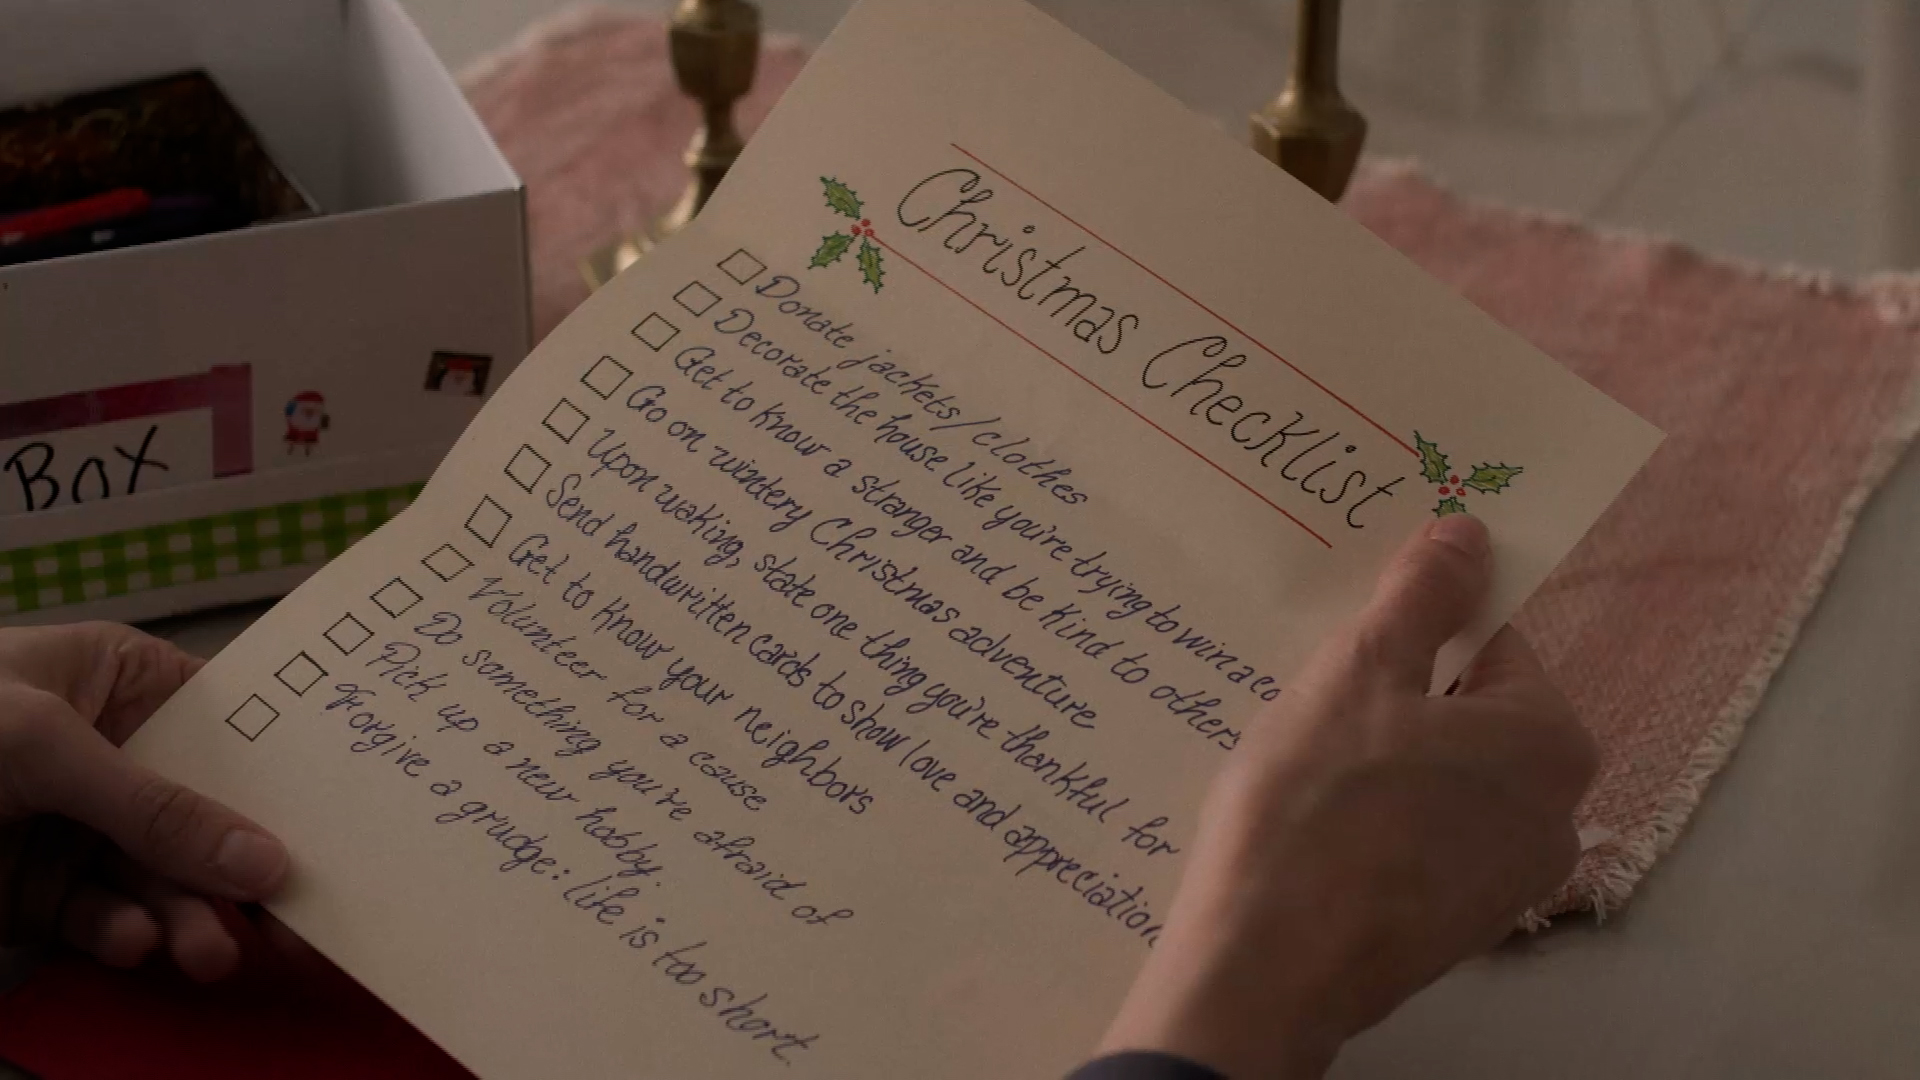 Christmas Checklist
Donate jackets/clothes
Decorate the house like you're trying to win a co
Get to know a stranger and be kind to others
Go on wintery Christmas adventure
Upon waking, state one thing you're thankful for
Send handwritten cards to show love and appreciation
Get to know your neighbors
Volunteer for a cause
Do something you're afraid of
Pick up a new hobby.
Forgive a grudge: life is too short.
Box